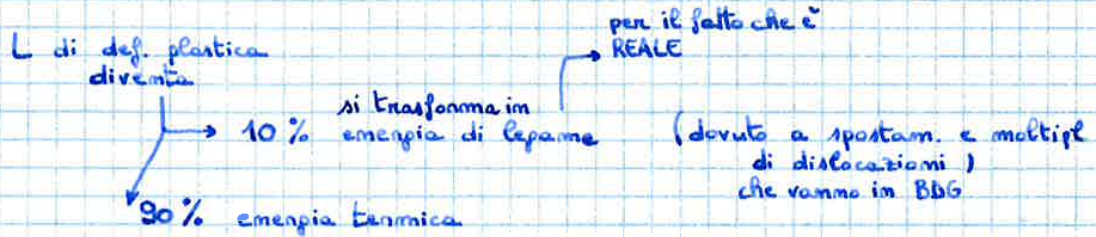 L di def. plastica
diventa
per il fatto che è
REALE
si trasforma in
10 % energia di legame (dovuto a spostam. e moltipl
di dislocazioni )
che vanno in BDG
90 % energia termica